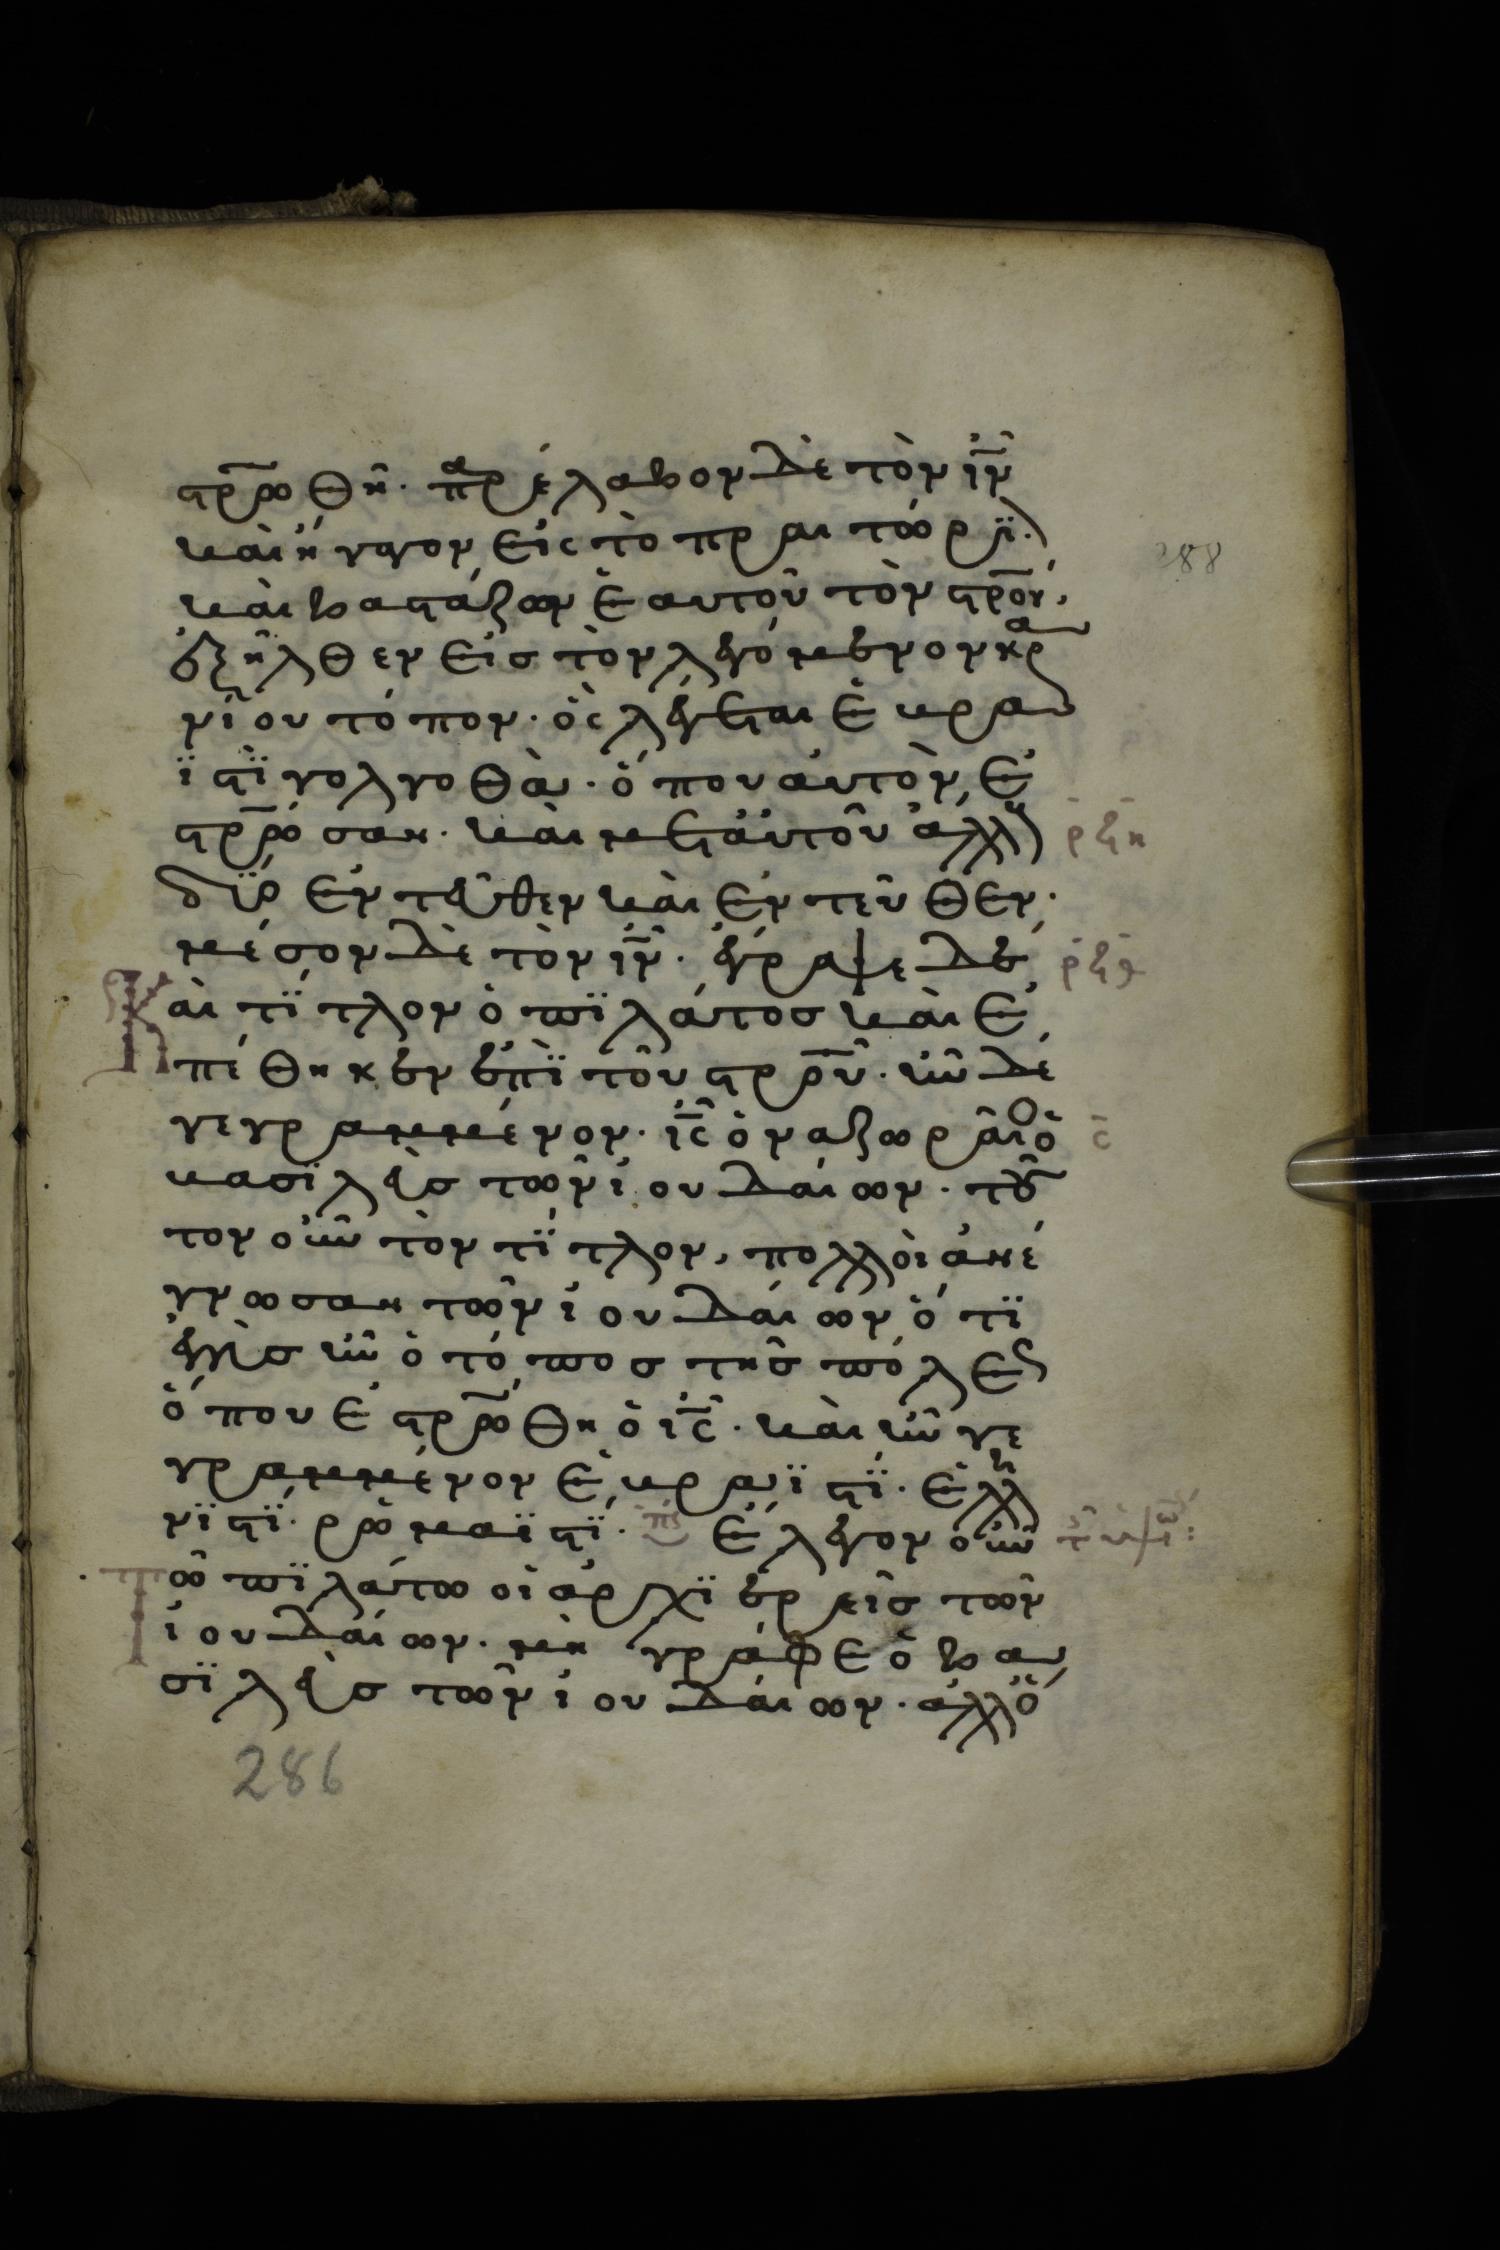 στ̅ρωθῆ· π̅ρέλαβον δὲ τὸν ι̅ν̅
288
καὶ ἤγαγον εἰς τὸ πραιτώρϊ·
καὶ βαστάζων ἑαυτοῦ τὸν στ̅ρον,
ἐξῆλθεν εἰς τὸν λεγόμενον κρα
νίου τόπον· ὃς λέγεται ἑβρα
ϊστϊ γολγοθὰ· ὅπου αὐτὸν ἐ
στ̅ρωσαν· καὶ μετ αὐτοῦ ἄλλους
ρϟη
δύο ἐντεῦθεν καὶ ἐντεῦθεν·
μέσον δὲ τὸν ι̅ν̅· ἔγραψε δὲ
ρϟθ
καὶ τΐτλον ὁ πϊλάτος καὶ ἐ
πέθηκεν ἐπῒ τοῦ στ̅ρου̅· ἦν δὲ
γεγραμμένον· ι̅ς̅ ὁ ναζωραῖο ὁ
σ̅
βασϊλεὺς τῶν ἰουδαίων· τοῦ
τον οὖν τὸν τΐτλον, πολλοὶ ἀνέ
γνωσαν τῶν ἰουδαίων ὅτϊ
ἐγγὺς ἦν ὁ τόπος τῆς πόλεως
ὅπου ἐστ̅ρωθη ὁ ι̅ς̅· καὶ ἦν γε
γραμμένον ἑβραϊστΐ· ἑλλη
νϊστΐ· ρωμαϊστΐ· ἔλεγον οὖν
τῶ πϊλάτω οἱ ἀρχϊερεῖς τῶν
ἰουδαίων· μὴ γράφε ὁ βα
σϊλεὺς τῶν ἰουδαίων· ἀλλ ὅ
286